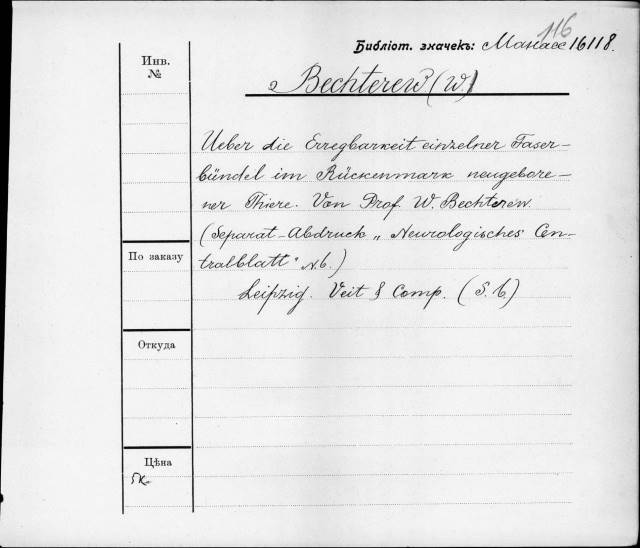 116
Библіот. значекъ: Манасс 16118.
Инв.
№
Bechterew (W.)
Ueber die Erregbarkeit einzelner Faser-
bündel im Rückenmark neugebore-
ner Thiere. Von Prof. W. Bechterew.
(Separat-Abdruck „Neurologisches Cen-
tralblatt" N. 6.)
Leipzig. Veit & Comp. (S. 6)
По заказу
Откуда
Цѣна
5к.